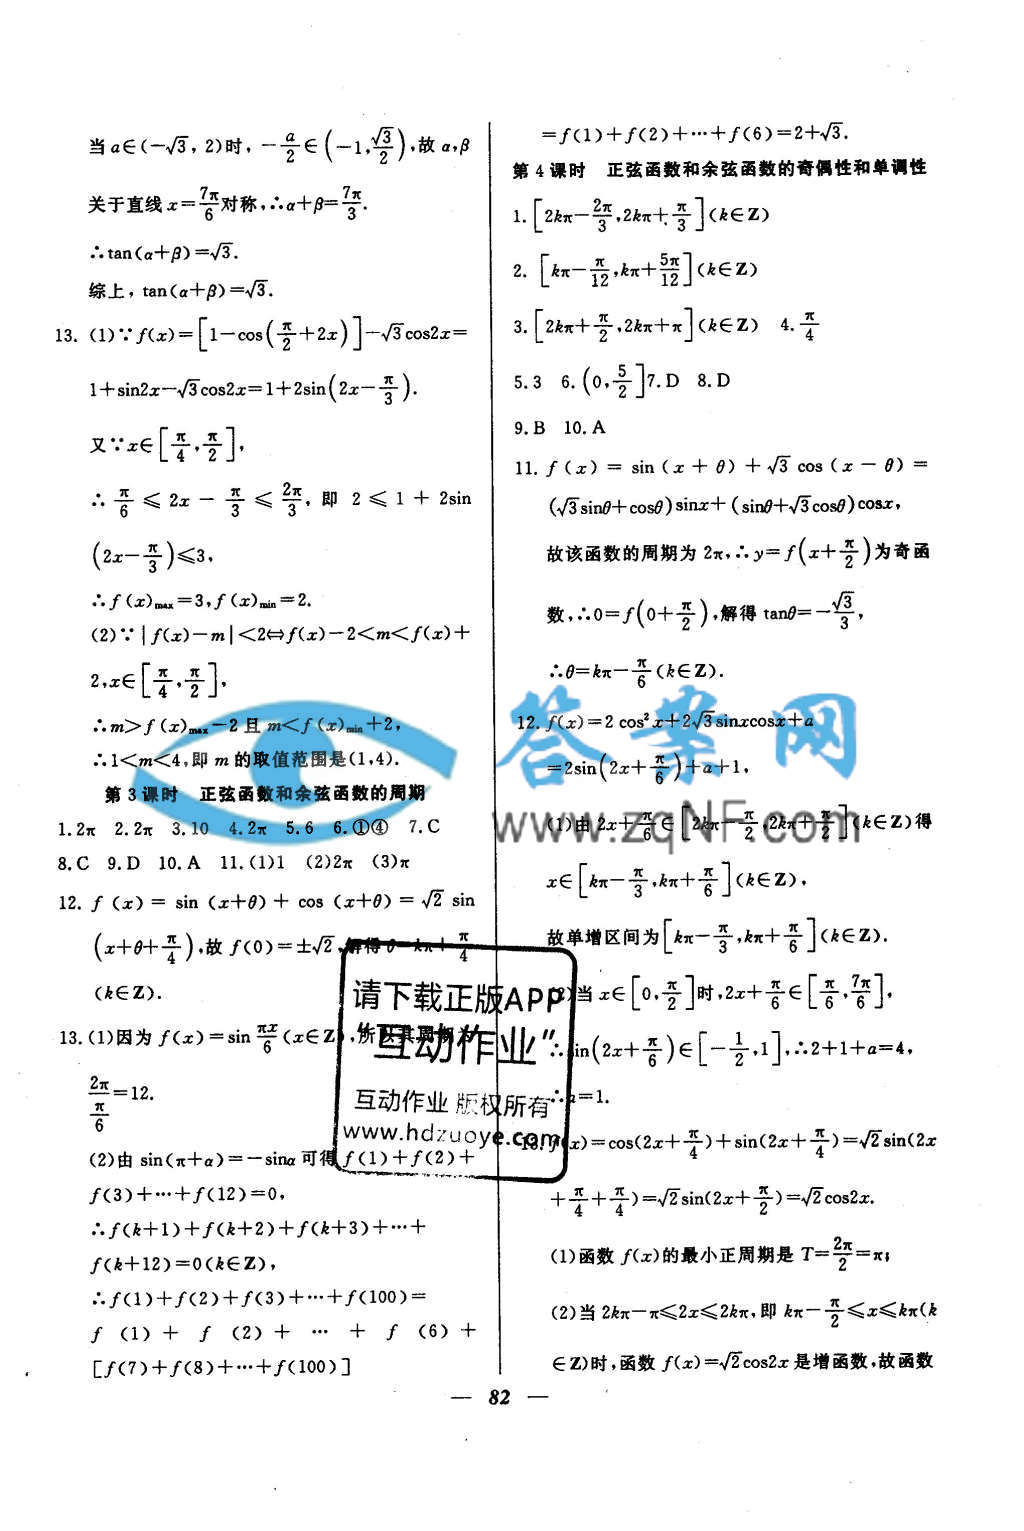 当 a∈(-√3, 2)时, -a/2∈(-1, √3/2), 故 α,β
关于直线 x=7π/6对称, ∴α+β=7π/3.
∴tan(α+β)=√3.
综上, tan(α+β)=√3.
13. (1)∵f(x)=[1-cos(π/2+2x)]-√3cos2x=
1+sin2x-√3cos2x=1+2sin(2x-π/3).
又∵x∈[π/4, π/2],
∴π/6⩽2x-π/3⩽2π/3, 即 2⩽1+2sin
(2x-π/3)⩽3,
∴f(x)max=3, f(x)min=2.
(2)∵|f(x)-m|<2⇔f(x)-2<m<f(x)+
2, x∈[π/4, π/2],
∴m>f(x)max-2且 m<f(x)min+2,
∴1<m<4, 即 m 的取值范围是(1,4).
第 3 课时 正弦函数和余弦函数的周期
1. 2π 2. 2π 3. 10 4. 2π 5. 6 6. ①④ 7. C
8. C 9. D 10. A 11. (1)1 (2)2π (3)π
12. f(x)=sin(x+θ)+cos(x+θ)=√2 sin
(x+θ+π/4), 故 f(0)=±√2, 解得 θ=kπ+π/4
(k∈Z).
13. (1)因为 f(x)=sin πx/6(x∈Z), 所以其周期为
2π/(π/6)=12.
(2)由 sin(π+α)=-sinα 可得 f(1)+f(2)+
f(3)+⋯+f(12)=0,
∴f(k+1)+f(k+2)+f(k+3)+⋯+
f(k+12)=0(k∈Z),
∴f(1)+f(2)+f(3)+⋯+f(100)=
f(1)+f(2)+⋯+f(6)+
[f(7)+f(8)+⋯+f(100)]
=f(1)+f(2)+⋯+f(6)=2+√3.
第 4 课时 正弦函数和余弦函数的奇偶性和单调性
1. [2kπ-2π/3, 2kπ+π/3](k∈Z)
2. [kπ-π/12, kπ+5π/12](k∈Z)
3. [2kπ+π/2, 2kπ+π](k∈Z) 4. π/4
5. 3 6. (0, 5/2] 7. D 8. D
9. B 10. A
11. f(x)=sin(x+θ)+√3cos(x-θ)=
(√3sinθ+cosθ)sinx+(sinθ+√3cosθ)cosx,
故该函数的周期为 2π, ∴y=f(x+π/2)为奇函
数, ∴0=f(0+π/2), 解得 tanθ=-√3/3,
∴θ=kπ-π/6(k∈Z).
12. f(x)=2cos²x+2√3sinxcosx+a
=2sin(2x+π/6)+a+1,
(1)由 2x+π/6∈[2kπ-π/2, 2kπ+π/2](k∈Z)得
x∈[kπ-π/3, kπ+π/6](k∈Z),
故单增区间为[kπ-π/3, kπ+π/6](k∈Z).
(2)当 x∈[0, π/2]时, 2x+π/6∈[π/6, 7π/6],
∴sin(2x+π/6)∈[-1/2, 1], ∴2+1+a=4,
∴a=1.
13. f(x)=cos(2x+π/4)+sin(2x+π/4)=√2sin(2x
+π/4+π/4)=√2sin(2x+π/2)=√2cos2x.
(1)函数 f(x)的最小正周期是 T=2π/2=π;
(2)当 2kπ-π⩽2x⩽2kπ, 即 kπ-π/2⩽x⩽kπ(k
∈Z)时, 函数 f(x)=√2cos2x 是增函数, 故函数
— 82 —
答案网
www.zqNF.com
请下载正版APP
“互动作业”
互动作业 版权所有
www.hdzuoye.com